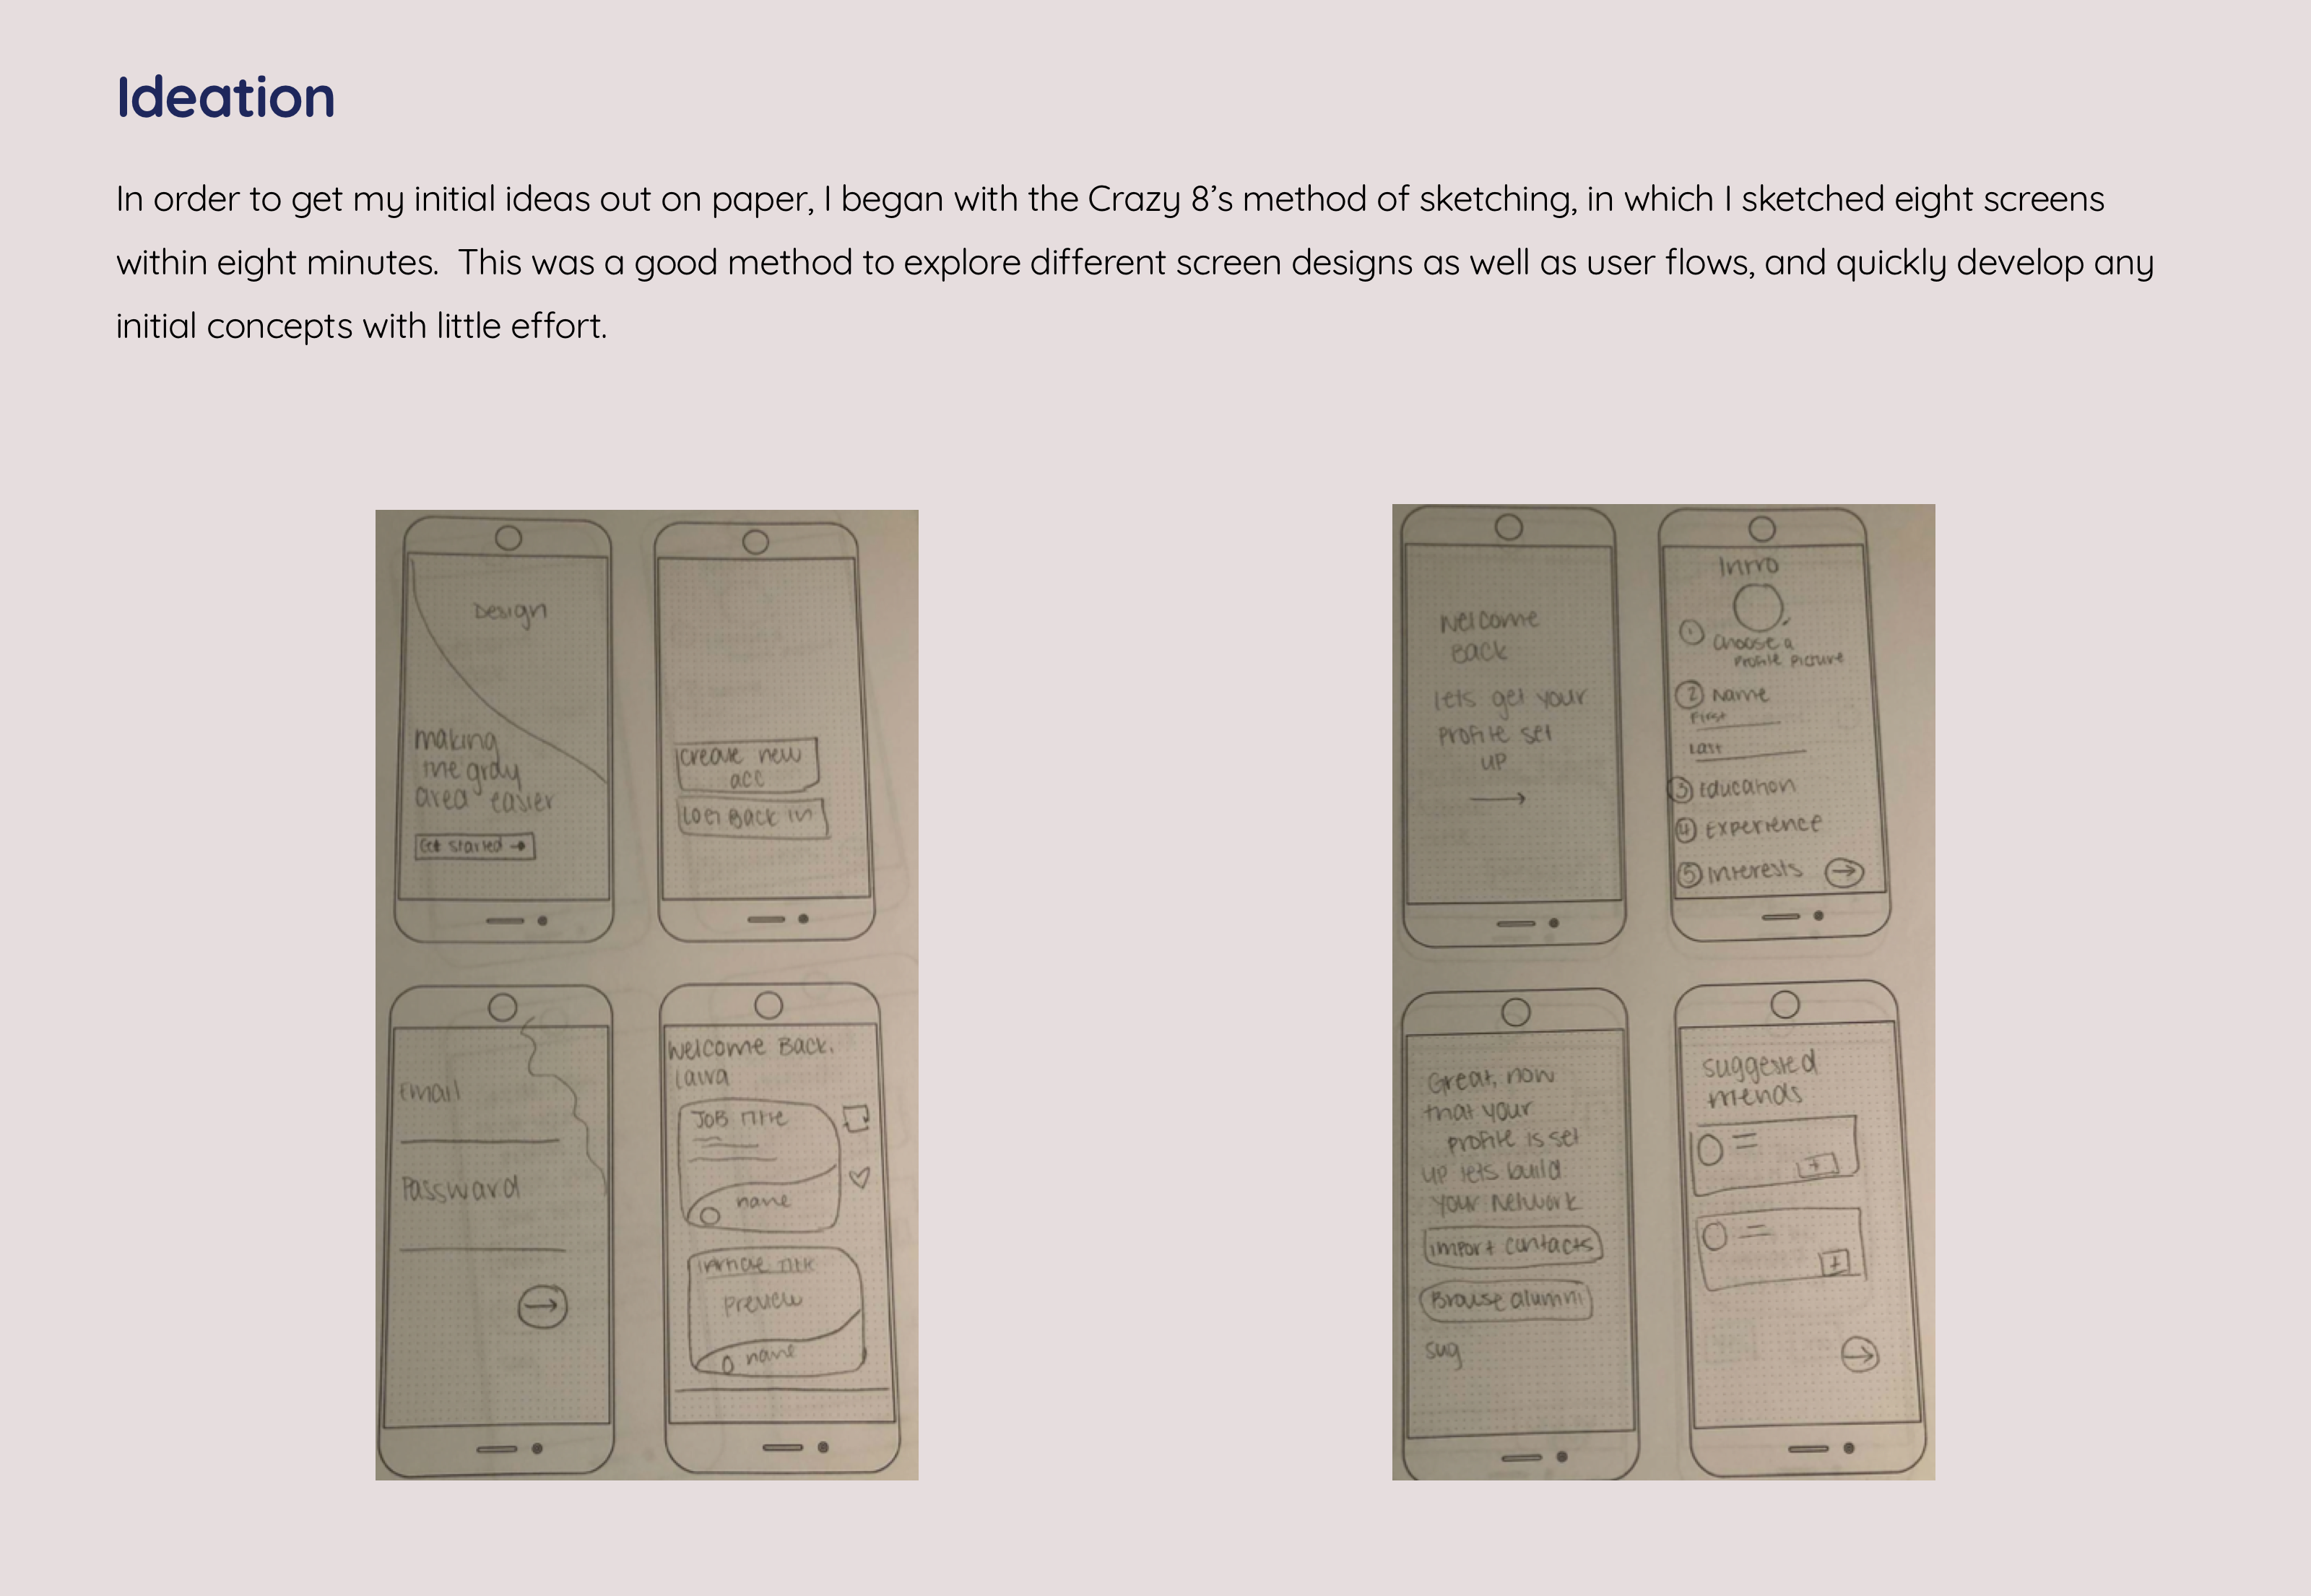 Ideation
In order to get my initial ideas out on paper, I began with the Crazy 8’s method of sketching, in which I sketched eight screens
within eight minutes.  This was a good method to explore different screen designs as well as user flows, and quickly develop any
initial concepts with little effort.
Design
making
the gray
area easier
Get started →
create new
acc
Log Back in
Email
Password
→
Welcome Back,
Laura
JOB Title
name
Article Title
Preview
name
Welcome
Back
lets get your
profile set
up
→
Intro
1 Choose a
Profile Picture
2 Name
First
Last
3 Education
4 Experience
5 Interests →
Great, now
that your
profile is set
up lets build
your network
import contacts
Browse alumni
sug
suggested
friends
+
+
→